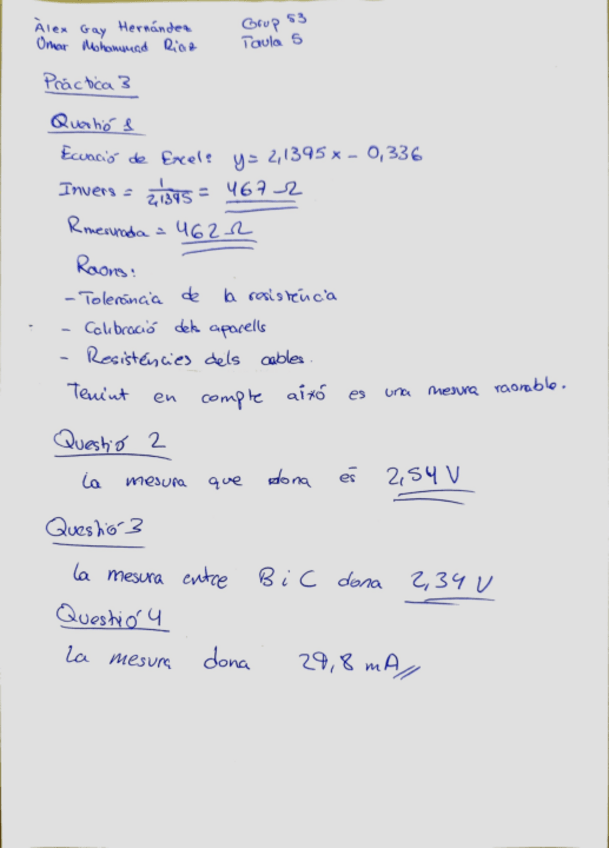 Àlex Gay Hernández Grup 53
Omar Mohammad Riaz Taula 5
Pràctica 3
Questió 1
Ecuació de Excel: y = 2,1395x - 0,336
Invers = 1/2,1395 = 467 Ω
Rmesurada = 462 Ω
Raons:
- Tolerància de la resistència
- Calibració dels aparells
- Resistències dels cables.
Tenint en compte aixó es una mesura raonable.
Questió 2
La mesura que dona és 2,54 V
Questió 3
La mesura entre B i C dona 2,34 V
Questió 4
La mesura dona 29,8 mA